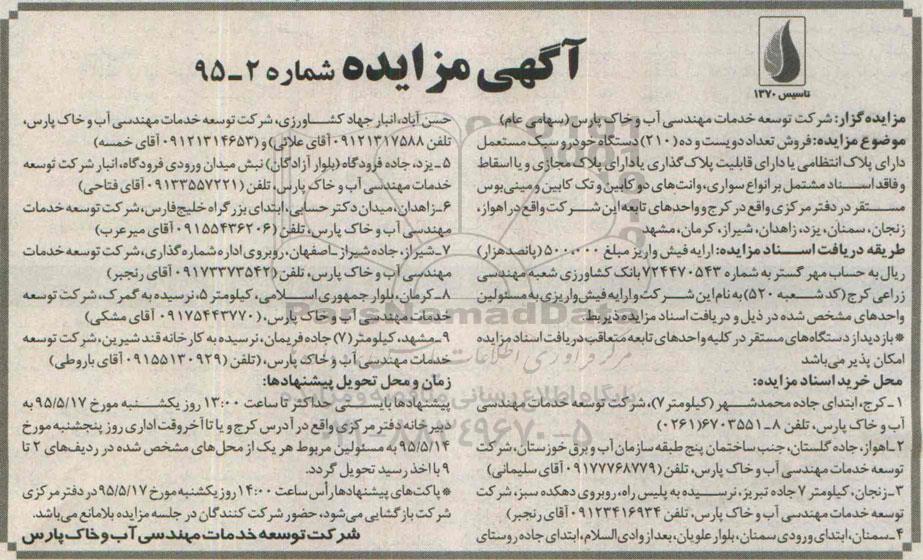 آگهی مزایده شماره ۲-۹۵
تاسیس ۱۳۷۰
مزایده گزار: شرکت توسعه خدمات مهندسی آب و خاک پارس (سهامی عام)
موضوع مزایده: فروش تعداد دویست و ده (۲۱۰) دستگاه خودرو سبک مستعمل
دارای پلاک انتظامی یا دارای قابلیت پلاک گذاری یا دارای پلاک مجازی و یا اسقاط
و فاقد اسناد مشتمل بر انواع سواری، وانت‌های دو کابین و تک کابین و مینی بوس
مستقر در دفتر مرکزی واقع در کرج و واحدهای تابعه این شرکت واقع در اهواز،
زنجان، سمنان، یزد، زاهدان، شیراز، کرمان، مشهد
طریقه دریافت اسناد مزایده: ارایه فیش واریز مبلغ ۵۰۰,۰۰۰ (پانصدهزار)
ریال به حساب مهر گستر به شماره ۷۲۴۴۷۰۵۴۳ بانک کشاورزی شعبه مهندسی
زراعی کرج (کد شعبه ۵۲۰) به نام این شرکت و ارایه فیش واریزی به مسئولین
واحدهای مشخص شده در ذیل و دریافت اسناد مزایده ذیربط
* بازدید از دستگاه‌های مستقر در کلیه واحدهای تابعه متعاقب دریافت اسناد مزایده
امکان پذیر می‌باشد
محل خرید اسناد مزایده:
۱- کرج، ابتدای جاده محمدشهر (کیلومتر ۷)، شرکت توسعه خدمات مهندسی
آب و خاک پارس، تلفن ۸-۶۷۰۳۵۵۱ (۰۲۶۱)
۲- اهواز، جاده گلستان، جنب ساختمان پنج طبقه سازمان آب و برق خوزستان، شرکت
توسعه خدمات مهندسی آب و خاک پارس، تلفن (۰۹۱۷۷۷۶۸۷۷۹ آقای سلیمانی)
۳- زنجان، کیلومتر ۷ جاده تبریز، نرسیده به پلیس راه، روبروی دهکده سبز، شرکت
توسعه خدمات مهندسی آب و خاک پارس، تلفن ۰۹۱۲۳۴۱۶۹۳۴ آقای رنجبر)
۴- سمنان، ابتدای ورودی سمنان، بلوار علویان، بعد از وادی السلام، ابتدای جاده روستای
حسن آباد، انبار جهاد کشاورزی، شرکت توسعه خدمات مهندسی آب و خاک پارس،
تلفن ۰۹۱۲۱۳۱۷۵۸۸ آقای علائی) و (۰۹۱۲۱۳۱۴۶۵۳ آقای خمسه)
۵- یزد، جاده فرودگاه (بلوار آزادگان) نبش میدان ورودی فرودگاه، انبار شرکت توسعه
خدمات مهندسی آب و خاک پارس، تلفن (۰۹۱۳۳۵۵۷۲۲۱ آقای فتاحی)
۶- زاهدان، میدان دکتر حسابی، ابتدای بزرگراه خلیج فارس، شرکت توسعه خدمات
مهندسی آب و خاک پارس، تلفن (۰۹۱۵۵۴۳۶۲۰۶ آقای میرعرب)
۷- شیراز، جاده شیراز-اصفهان، روبروی اداره شماره گذاری، شرکت توسعه خدمات
مهندسی آب و خاک پارس، تلفن (۰۹۱۷۳۳۷۳۵۴۲ آقای رنجبر)
۸- کرمان، بلوار جمهوری اسلامی، کیلومتر ۵، نرسیده به گمرک، شرکت توسعه
خدمات مهندسی آب و خاک پارس، (۰۹۱۷۵۴۴۳۷۷۰ آقای مشکی)
۹- مشهد، کیلومتر (۷) جاده فریمان، نرسیده به کارخانه قند شیرین، شرکت توسعه
خدمات مهندسی آب و خاک پارس، (تلفن ۰۹۱۵۵۱۳۰۹۲۹ آقای باروطی)
زمان و محل تحویل پیشنهادها:
پیشنهادها بایستی حداکثر تا ساعت ۱۳:۰۰ روز یکشنبه مورخ ۹۵/۵/۱۷ به
دبیرخانه دفتر مرکزی واقع در آدرس کرج و یا تا آخر وقت اداری روز پنجشنبه مورخ
۹۵/۵/۱۴ به مسئولین مربوط هر یک از محل‌های مشخص شده در ردیف‌های ۲ تا
۹ با اخذ رسید تحویل گردد.
* پاکت‌های پیشنهادها رأس ساعت ۱۴:۰۰ روز یکشنبه مورخ ۹۵/۵/۱۷ در دفتر مرکزی
شرکت بازگشایی می‌شود، حضور شرکت کنندگان در جلسه مزایده بلامانع می‌باشد.
شرکت توسعه خدمات مهندسی آب و خاک پارس
ParsNamadData
پایگاه اطلاع رسانی مناقصه و مزایده
۰۲۱-۸۸۳۴۹۶۷۰-۵